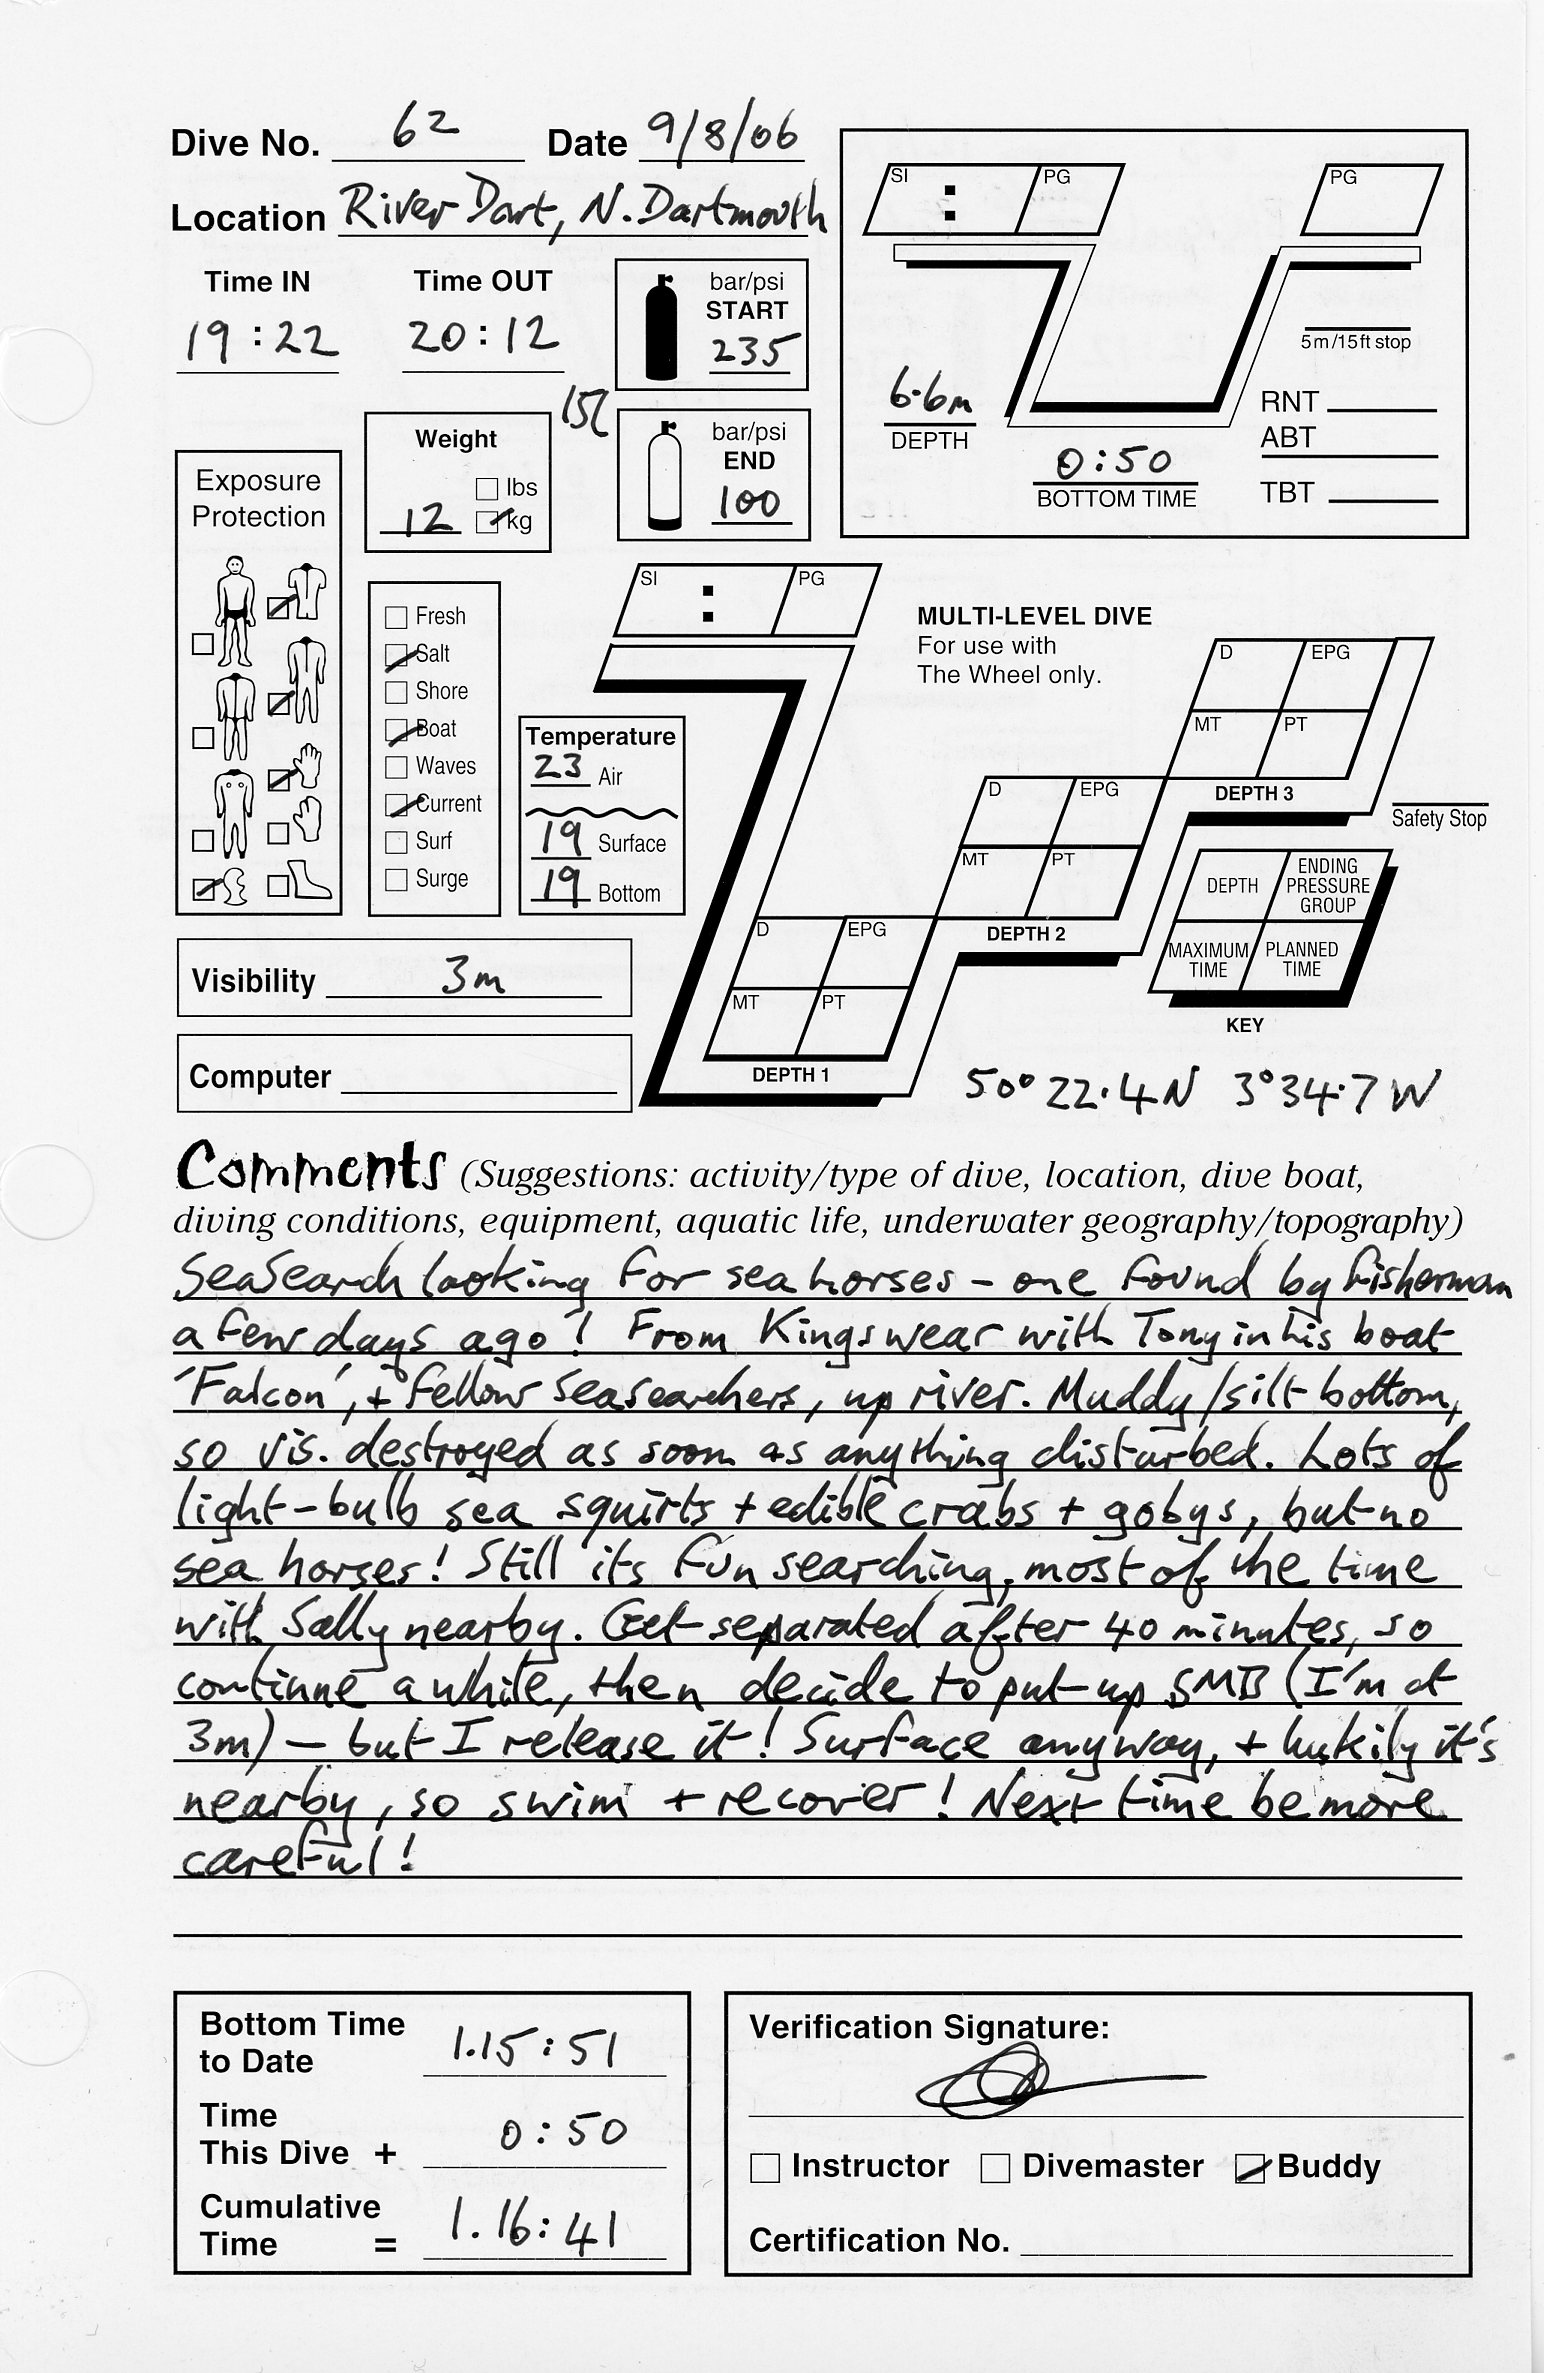 Dive No. 62 Date 9/8/06
Location River Dart, N. Dartmouth
Time IN Time OUT
19:22 20:12
bar/psi
START
235
15l
bar/psi
END
100
Weight
lbs
12 kg
Exposure
Protection
Fresh
Salt
Shore
Boat
Waves
Current
Surf
Surge
Temperature
23 Air
19 Surface
19 Bottom
Visibility 3m
Computer
SI : PG
PG
5m/15ft stop
6.6m
DEPTH
0:50
BOTTOM TIME
RNT
ABT
TBT
SI : PG
MULTI-LEVEL DIVE
For use with
The Wheel only.
D EPG
MT PT
DEPTH 3
D EPG
MT PT
DEPTH 2
D EPG
MT PT
DEPTH 1
Safety Stop
DEPTH ENDING PRESSURE GROUP
MAXIMUM TIME PLANNED TIME
KEY
50° 22.4N 3° 34.7W
Comments (Suggestions: activity/type of dive, location, dive boat,
diving conditions, equipment, aquatic life, underwater geography/topography)
SeaSearch looking for sea horses - one found by fisherman
a few days ago! From Kingswear with Tony in his boat
'Falcon', + fellow seasearchers, up river. Muddy/silt bottom,
so vis. destroyed as soon as anything disturbed. Lots of
light-bulb sea squirts + edible crabs + gobys, but no
sea horses! Still its fun searching, most of the time
with Sally nearby. Get separated after 40 minutes, so
continue a while, then decide to put up SMB (I'm at
3m) - but I release it! Surface anyway, + luckily it's
nearby, so swim + recover! Next time be more
careful!
Bottom Time
to Date 1.15:51
Time
This Dive + 0:50
Cumulative
Time = 1.16:41
Verification Signature:
Instructor Divemaster Buddy
Certification No.